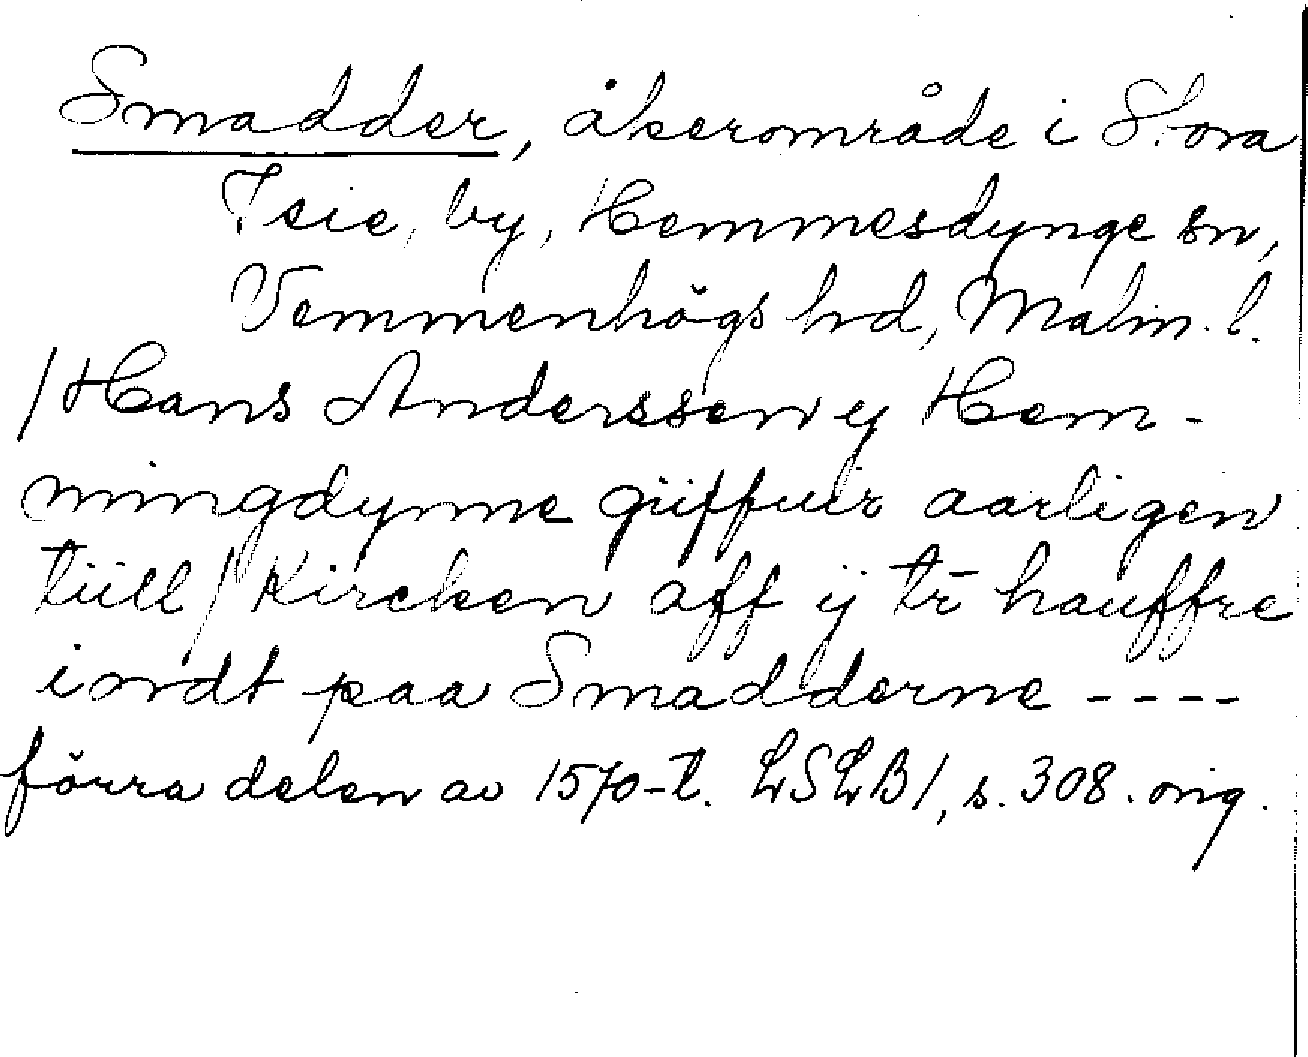 Smadder, åkerområde i Stora
Isie, by, Hemmesdynge sn,
Vemmenhögs hd, Malm. l.
/Hans Anderssen y Hem-
mingdynne giiffuir aarligen
tiill/Kircken aff ij tr̄ hauffre
iordt paa Smadderne ----
förra delen av 1570-t. LSLB1, s. 308. orig.